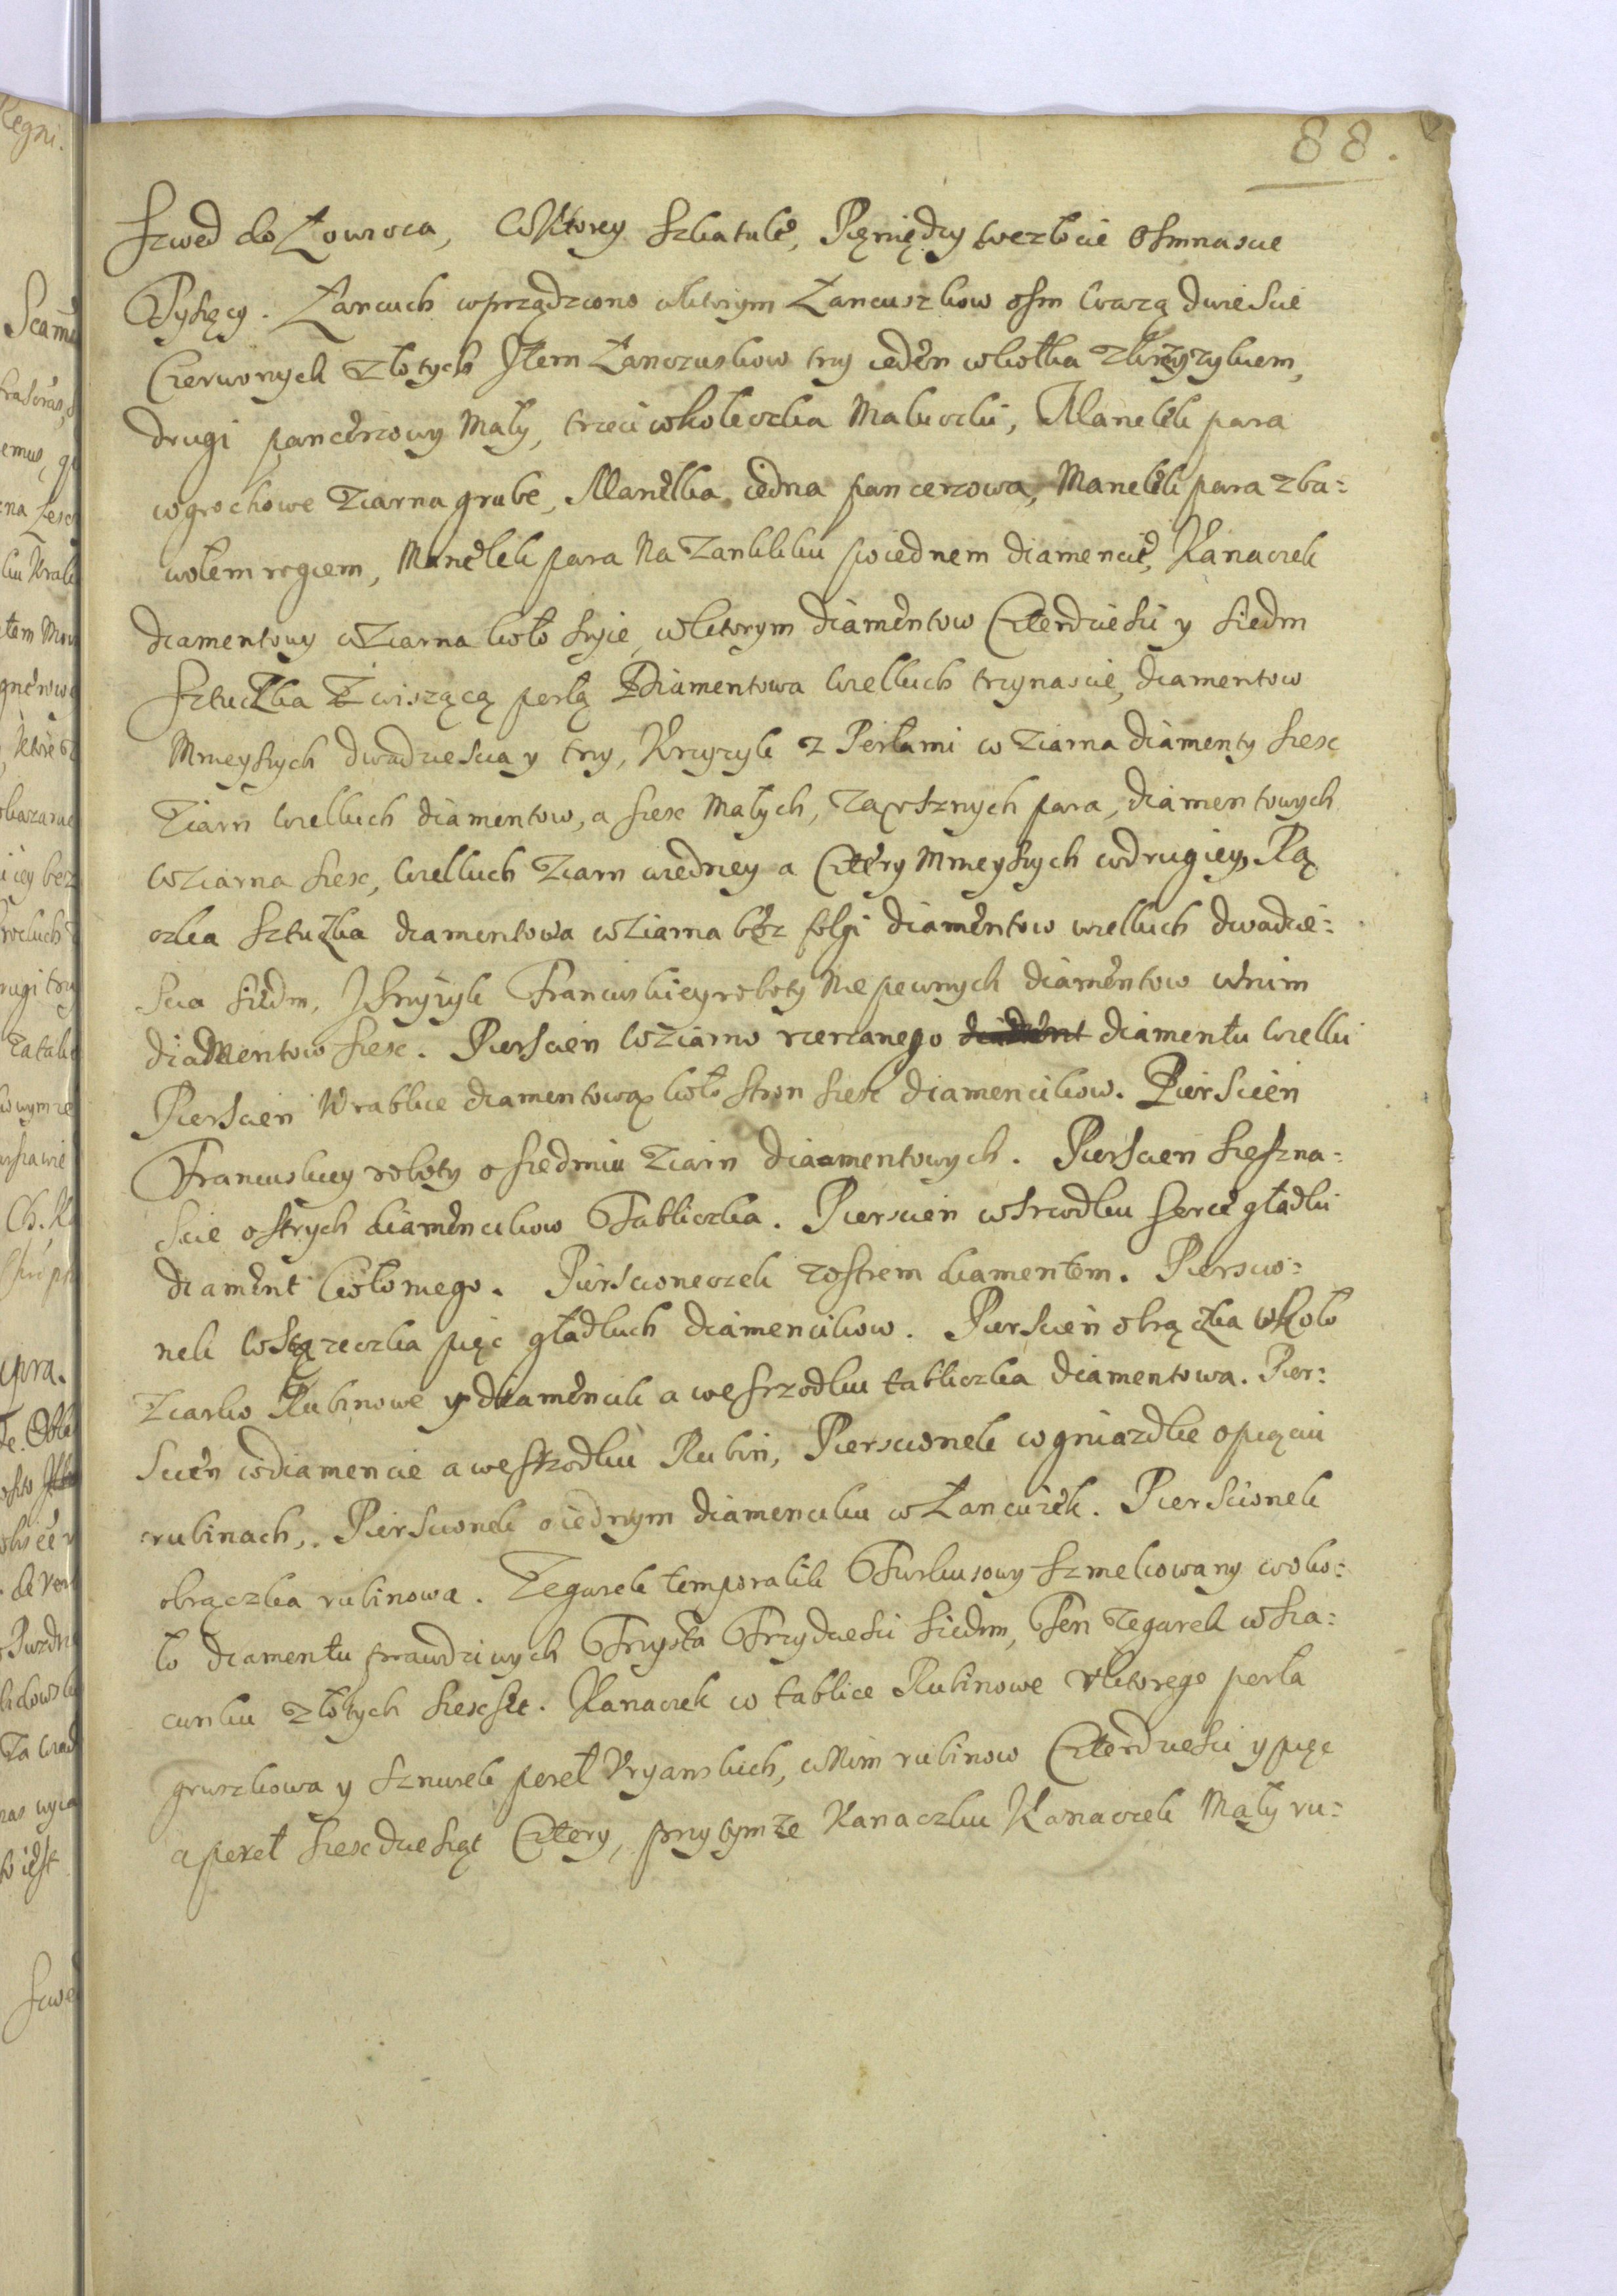 88.
Szwed do Łowica, Wktorey Szkatule, Pięniędzy wezłocie Osmnascie
Tysięcy. Łancuch wprządziono wktorym Łancuszkow osm Wazą dwiescie
Czerwonych złotych Item Łanczuskow trzy ieden wkołka zkrzyzykiem,
drugi pancerzowy Mały, trzeci wkoleczka Maluczki, Manelek para
wgrochowe Ziarna grube, Manelka iedna pancerzowa, Manelek para zba=
wołem rogiem, Manelek para Na Zamkliku poiednem diamencie, Kanaczek
diamentowy wZiarna koło szyie, wktorym diamentow Czterdziesci y siedm
Sztuczka Zwiszącą perłą Diamentowa Wielkich trzynascie, diamentow
Mnieyszych dwadziescia y trzy, Krzyzyk z Perłami w Ziarna diamenty szesc
Ziarn Wielkich diamentow, a szesc Małych, Zausznych para, diamentowych
WZiarna szesc, Wielkich Ziarn wiedney a Cztery Mnieyszych wdrugiey, Rą
czka Sztuczka diamentowa wZiarna bez folgi diamentow wielkich dwadzie=
scia siedm, Krzyzyk Francuskiey roboty Nie pewnych diamentow wnim
diamentow szesc. Pierscien WZiarno rzezanego diamentu Wielki
Pierscien Wtablice diamentową koło stron szesc diamencikow. Pierscien
Francuskiey roboty o siedmiu Ziarn diaamentowych. Pierscien szesna=
scie ostrych diamencikow Tabliczka. Pierscien wsrzodku serce gładki
diament koło niego. Pierscioneczek zostrem diamentem. Pierscio=
nek Wstązeczka pięc gładkich diamencikow. Pierscien obrączka wkoło
Ziarko Rubinowe y diamencik a wesrzodku tabliczka diamentowa. Pier=
scien wdiamencie a wesrzodku Rubin, Pierscionek wgniazdke opięciu
rubinach, Pierscionek oiednym diamenciku w Łancuzek. Pierscionek
obrączka rubinowa. Zegarek temporalik Turkusowy szmelcowany woko=
ło diamentu prawdziwych Trzysta Trzydziesci siedm, Ten Zegarek wsza=
cunku złotych szescset. Kanaczek w tablice Rubinowe vktorego perła
gruszkowa y sznurek pereł Vryanskich, wNim rubinow Czterdziesci y pięc
a pereł szescdziesiąt Cztery, przytymze Kanaczku Kanaczek Mały ru=